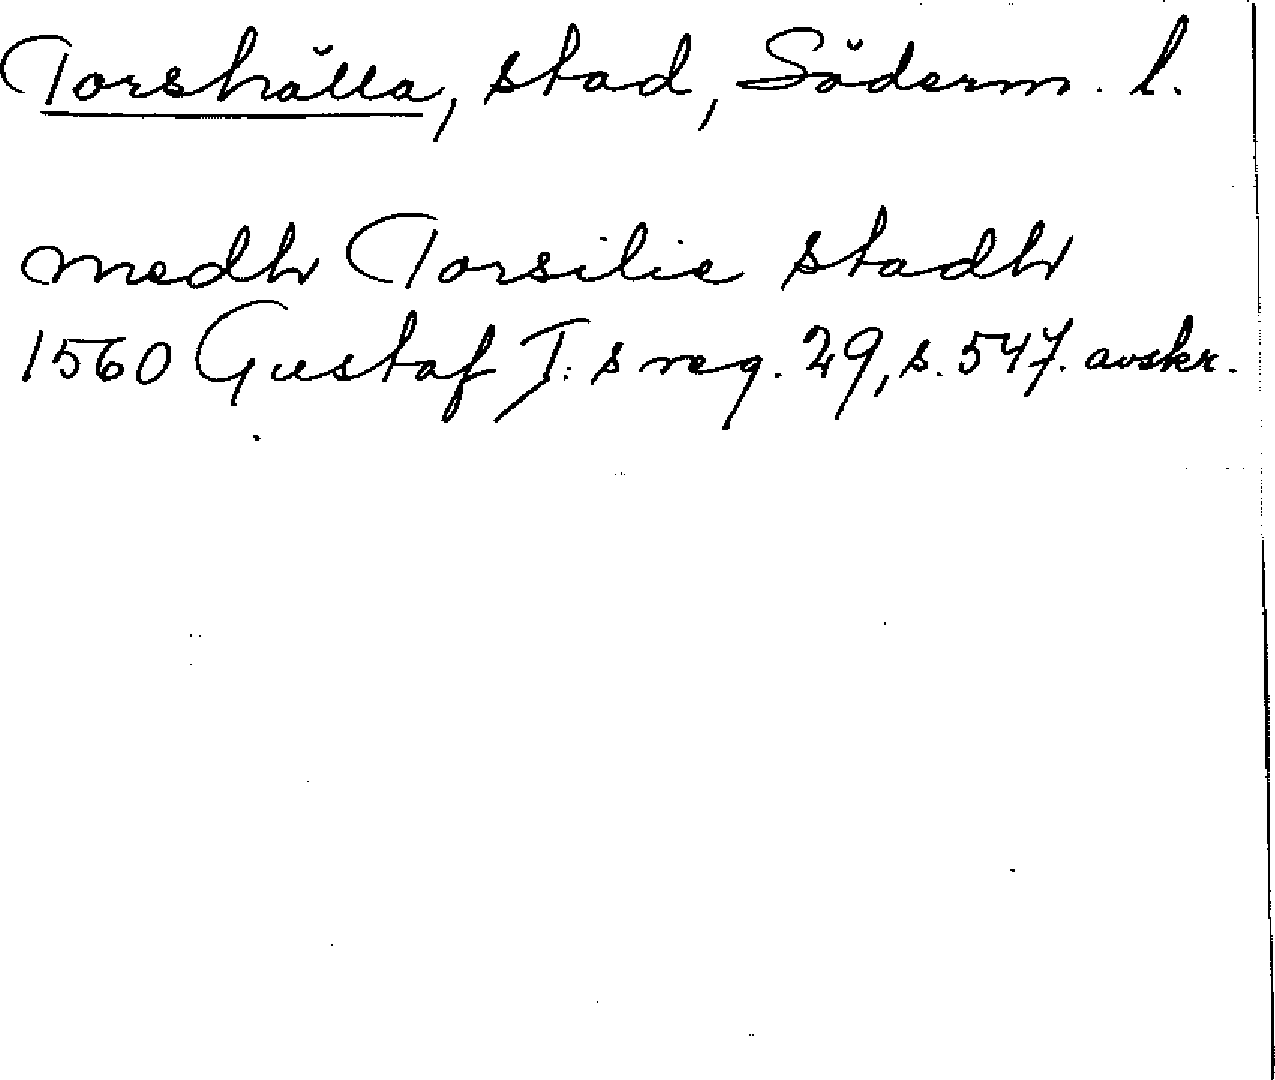 Torshälla, stad, Söderm. l.
medh Torsilie stadh
1560 Gustaf I:s reg. 29, s. 547. avskr.